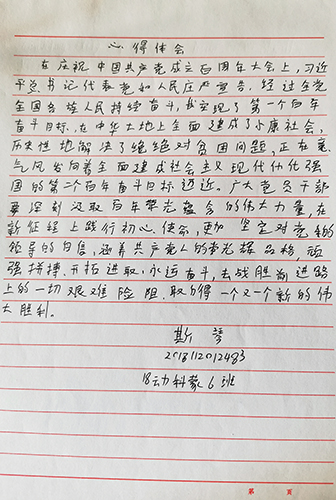 心得体会
在庆祝中国共产党成立百周年大会上，习近
平总书记代表党和人民庄严宣告，经过全党
全国各族人民持续奋斗，我们实现了第一个百年
奋斗目标，在中华大地上全面建成了小康社会，
历史性地解决了绝对贫困问题，正在意
气风发向着全面建成社会主义现代化强
国的第二个百年奋斗目标迈近。广大党员干部
要深刻汲取百年荣光蕴含的伟大力量，在
新征程上践行初心使命，更加坚定对党的
领导的自信，涵养共产党人的光辉品格，顽
强拼搏、开拓进取，永远奋斗，去战胜前进路
上的一切艰难险阻，取得一个又一个新的伟
大胜利。
斯琴
2018112012483
18动科蒙6班
第 页